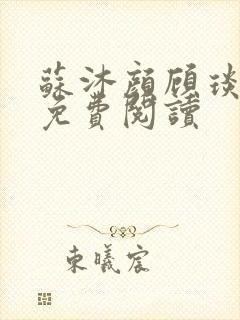 蘇沐顏顧琰
免費閱讀
東曦宸